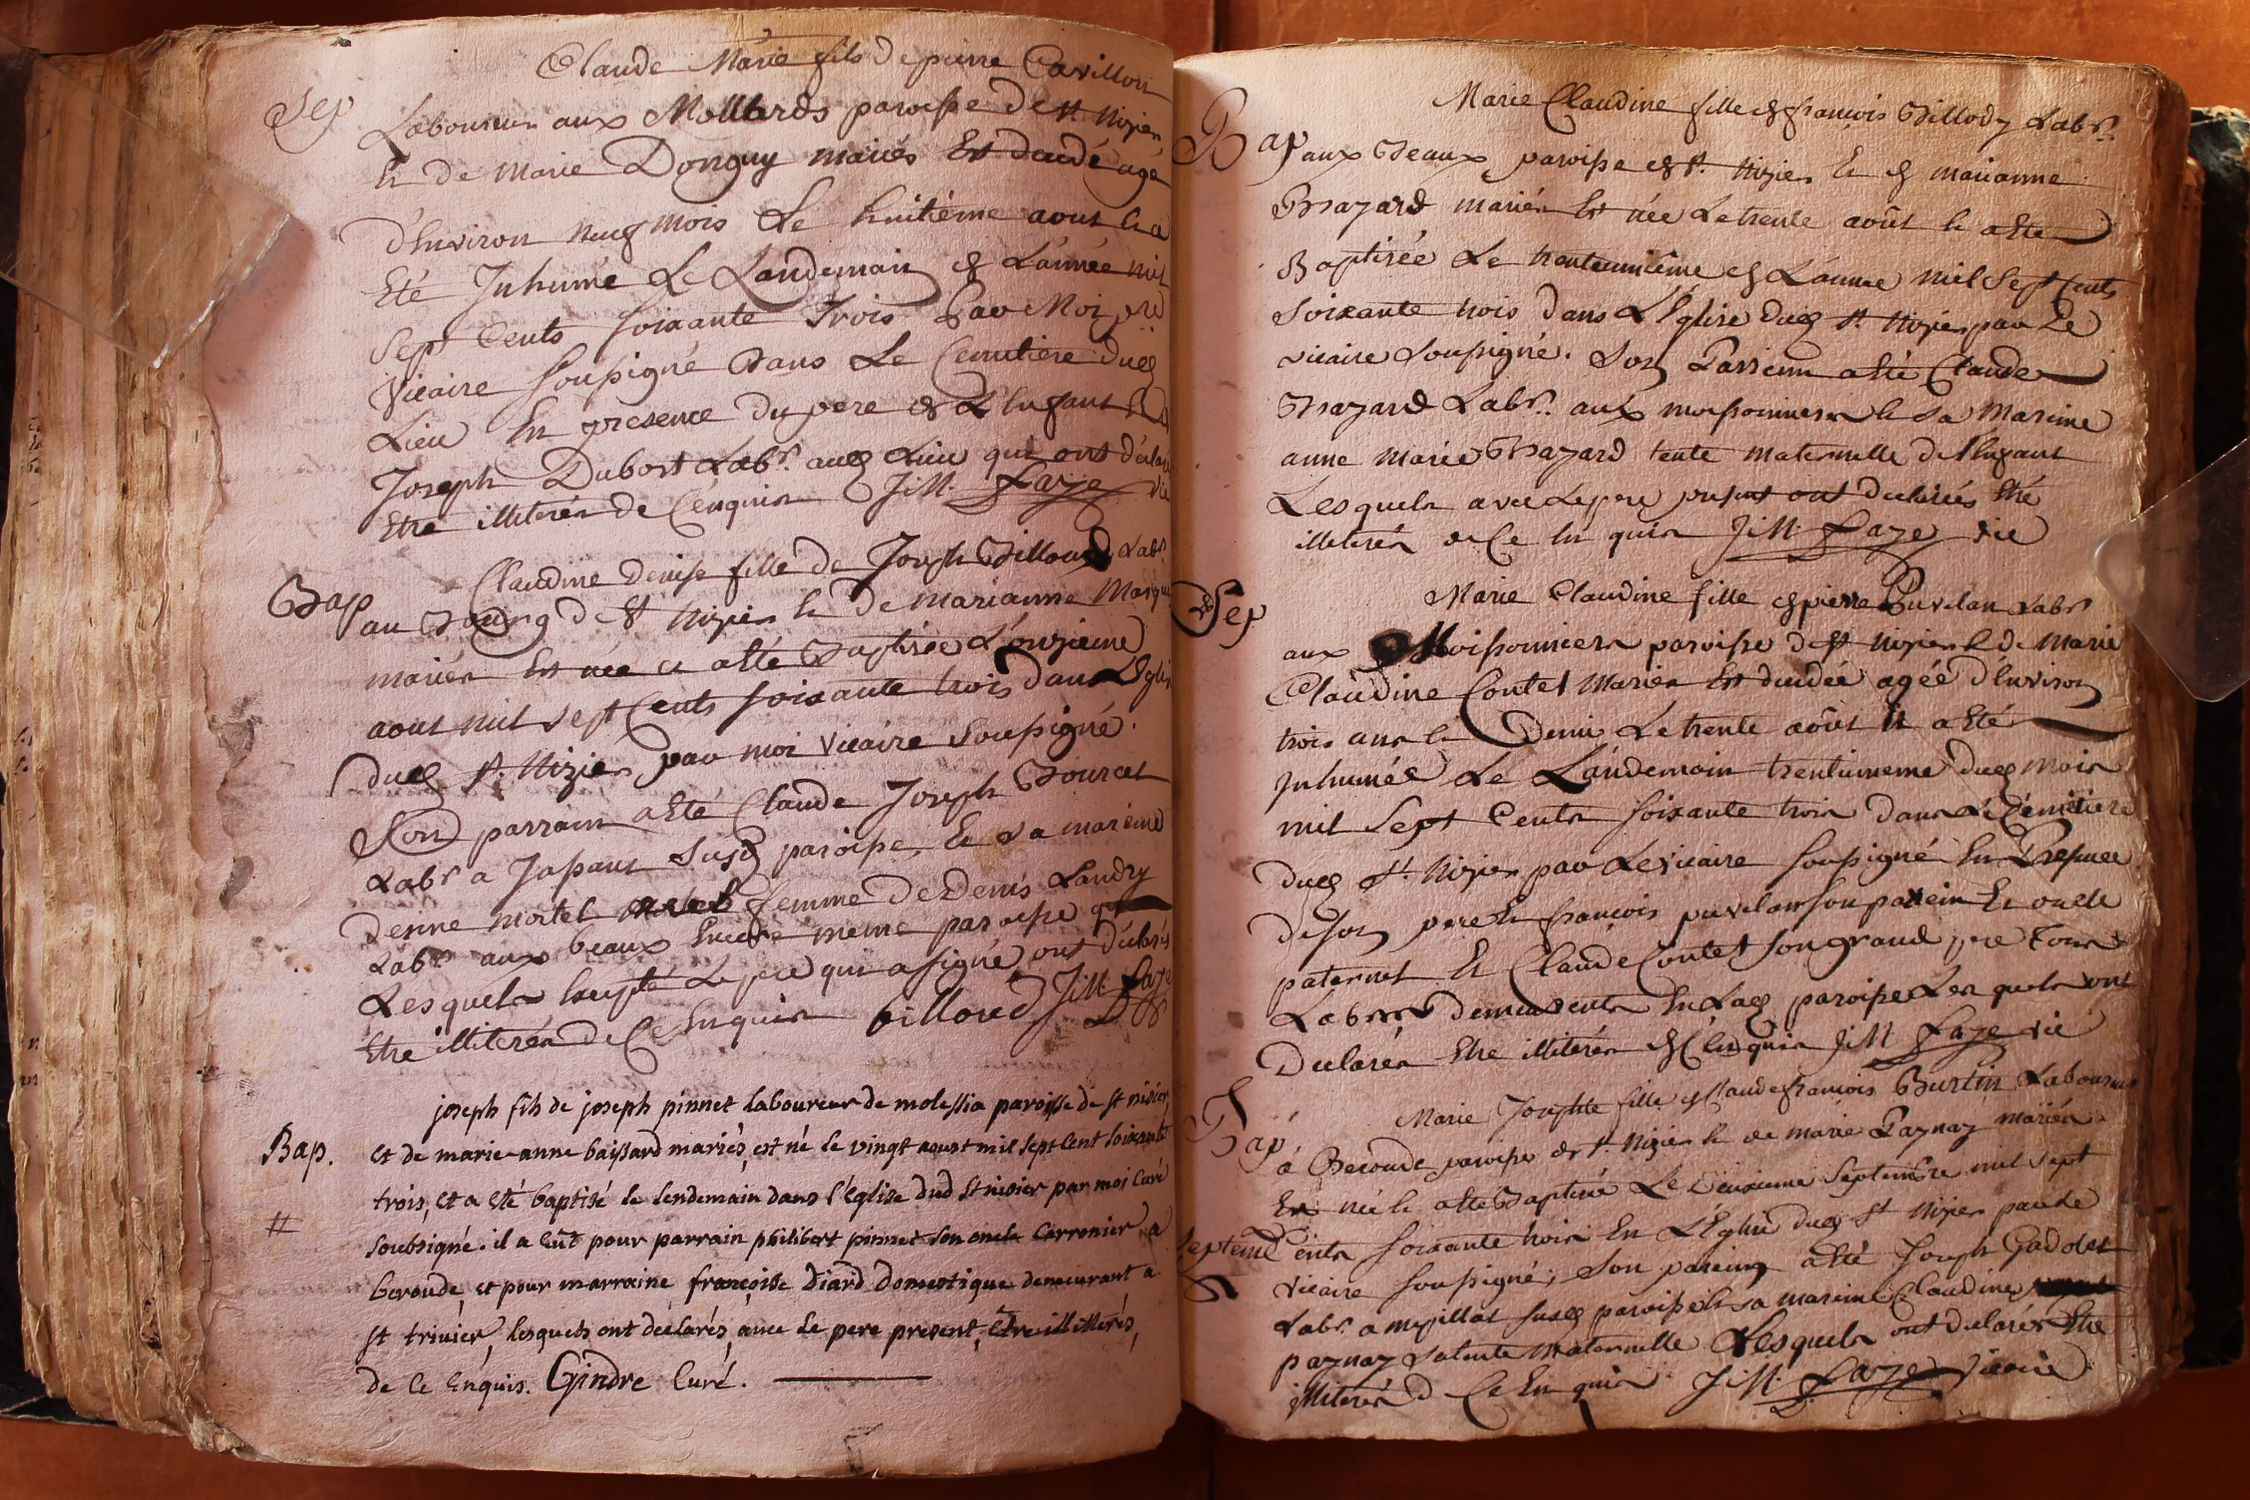 Claude Marie fils de pierre Cavillon
Sep.
Laboureur aux Mollards paroisse de st Nizier
Et de marie Donguy mariés Est décédé agé
d'Environ neuf mois Le huitième aout Et a
Eté Inhumé Le Landemain de L'année mil
Sept Cents soixante Trois Par Moi pre
Vicaire soussigné dans Le Cemetiere dud
Lieu En presence du pere de L'Enfant Et de
Joseph Dubost Labr. aud Lieu qui ont déclaré
Etre illiterés de Cenquis J:M: Laze vic
Claudine denise fille de Joseph Billoud Labr
Bap
au Bourg de st Nizier Et de marianne
mariés Est née Et a Eté Baptisée L'onzieme
aout mil sept Cents soixante trois dans L'Eglise
dud st. Nizier par moi vicaire soussigné.
Son parrain a Eté Claude Joseph Bourcet
Labr a Japant susd paroisse, Et sa mareine
denise mortel femme de Denis Landry
Labr aux beaux susdte meme paroisse
Lesquels Excepté Le pere qui a signé ont déclarés
Etre illiterés de Ce Enquis billoud J:M: Laze
joseph fils de joseph pinnet laboureur de molessia paroisse de st nisier
Bap.
et de marie-anne baissard mariés, est né le vingt aoust mil sept cent soixante
trois, et a eté baptisé le lendemain dans l'église dud st nisier par moi curé
#
soubsigné. il a eut pour parrain philibert pinnet son oncle Carronier a
beroude, et pour marraine françoise diard domestique demeurant a
st trivier, lesquels ont déclarés, avec le pere present, etre illitterés,
de ce enquis. Gindre curé.
Marie Claudine fille de françois Billody Labr.
Bap
aux Beaux paroisse de st. Nizier Et de marianne
Bazard mariés Est née Le trente août Et a Eté
Baptisée Le trenteunième de L'année mil Sept Cents
Soixante trois dans L'Eglise dud st. Nizier par Le
vicaire soussigné. Son Parrein a Eté Claude
Bazard Labr. aux moissonniers Et sa Mareine
anne marie Bazard tente maternelle de l'Enfant
Lesquels avec Le pere présent ont declarés Etre
illiterés de Ce En quis J:M: Laze vic
Marie Claudine fille de pierre Puvilan Labr
Sep
aux Moissonniers paroisse de st Nizier Et de Marie
Claudine Contet Mariés Est décédée agée d'Environ
trois ans Et Demi Le trente août Et a Eté
Inhumée Le Landemain trentunieme dud mois
mil Sept Cents soixante trois dans Le Cemetiere
dud st. Nizier par Le vicaire soussigné En Presence
de son pere Et françois puvilan son parrein Et oncle
paternel Et Claude Contet son grand pere tous
Labrs demeurents En Lad paroisse Les quels ont
Declarés Etre illiterés de Ce En quis J:M: Laze vic
Marie Josephte fille de Claude françois Burtin Laboureur
Bap
á Beroude paroisse de st. Nizier Et de marie Paznaz mariés
Est née Et a Eté Baptisée Le deuxieme Septembre mil sept
Septemb
Cents soixante trois En L'Eglise dud st Nizier par Le
vicaire soussigné, Son parein a Eté Joseph Gadolet
Labr. a mezillat susd paroisse Et sa mareine Claudine
paznaz sa tente Maternelle Lesquels ont déclarés Etre
illiterés de Ce En quis. J:M: Laze vicaire